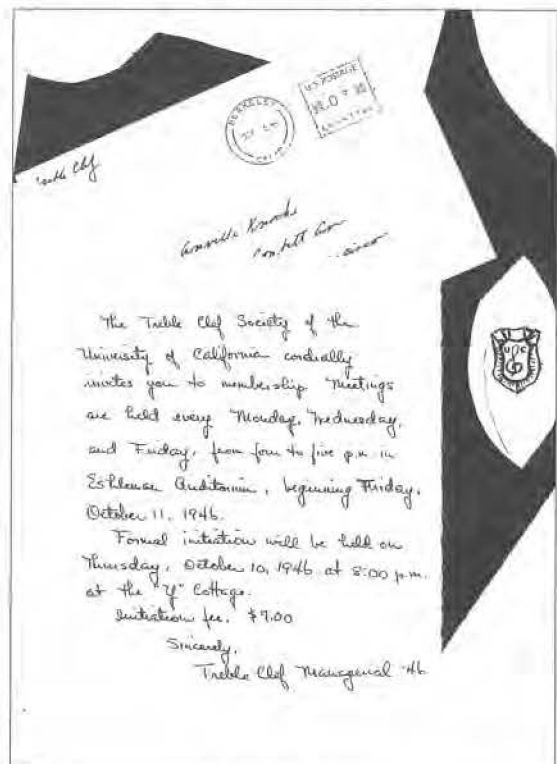 Treble Clef
BERKELEY
CALIF.
U.S. POSTAGE
The Treble Clef Society of the
University of California cordially
invites you to membership. Meetings
are held every Monday, Wednesday,
and Friday, from four to five p.m. in
Eshleman Auditorium, beginning Friday,
October 11, 1946.
Formal initiation will be held on
Thursday, October 10, 1946 at 8:00 p.m.
at the "Y" Cottage.
Initiation fee. $7.00
Sincerely,
Treble Clef Managerial '46
U C